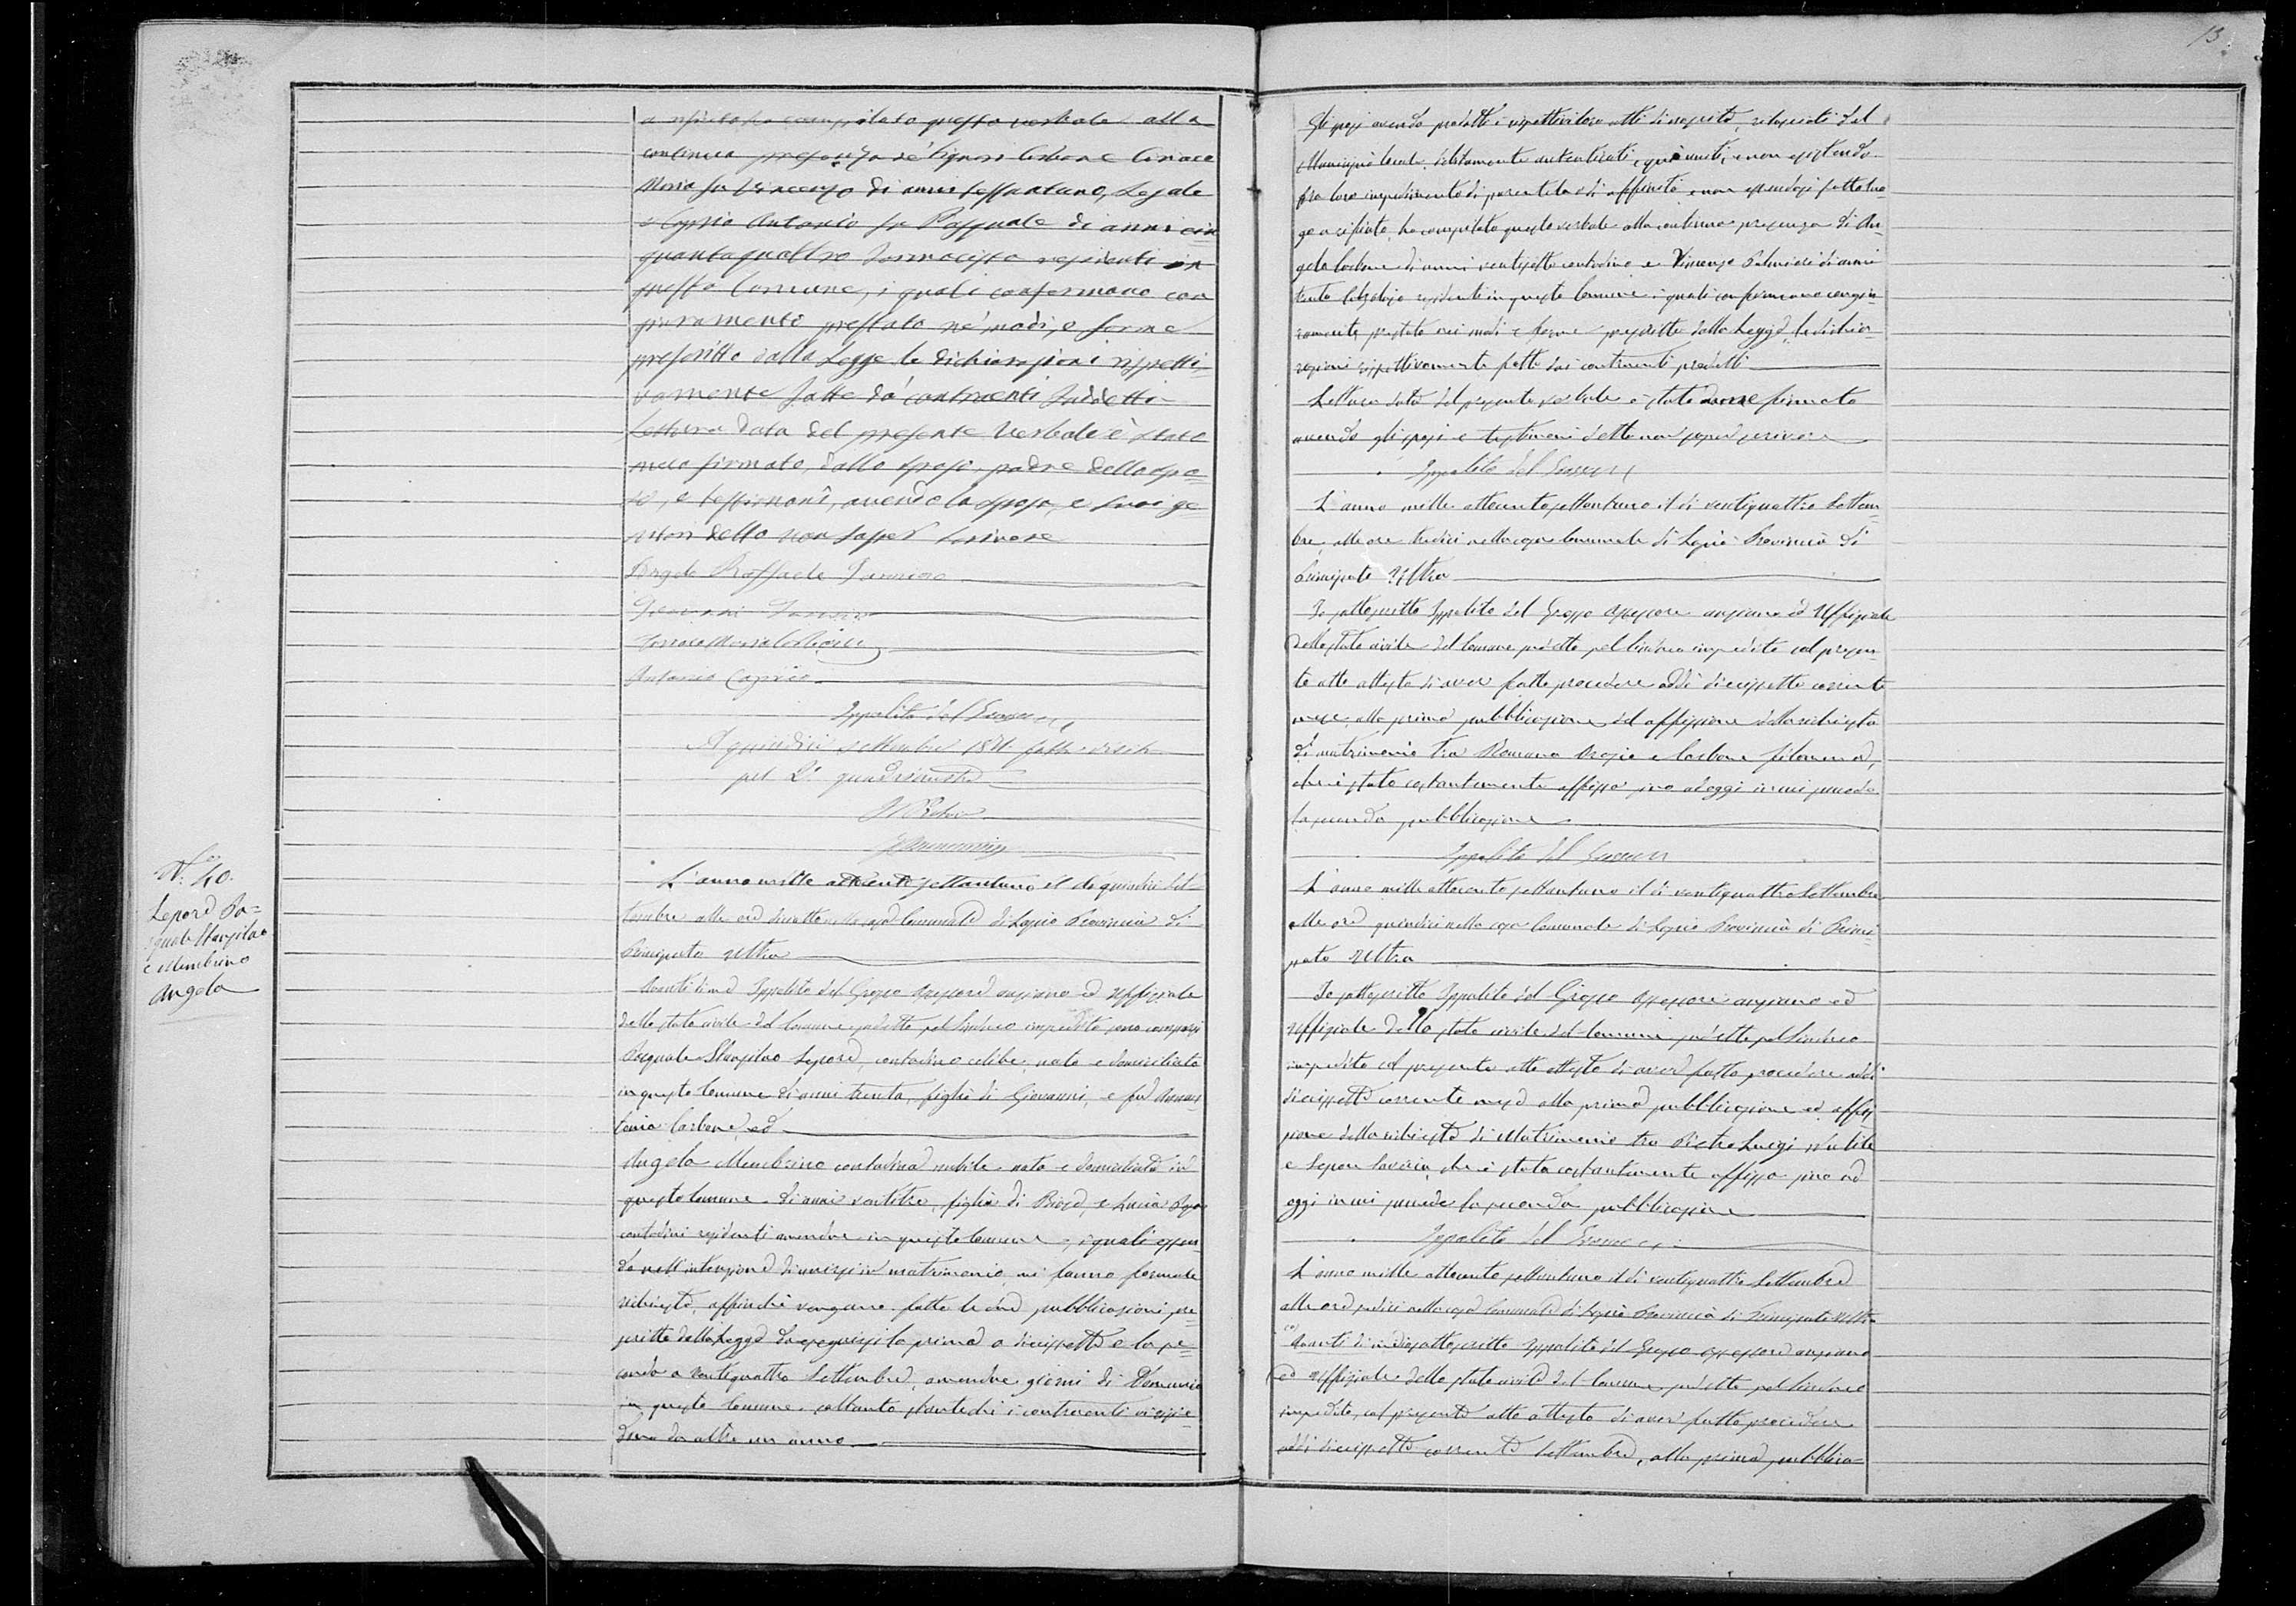 13
a rifiuto ha compilato questo verbale alla
continua presenza de' Signori Carbone Ciriaco
Maria fu Vincenzo di anni sessantuno, Legale
e Caprio Antonio fu Pasquale di anni cin
quantaquattro Farmacista residenti in
questo Comune, i quali confermano con
giuramento prestato ne' modi, e forme
prescritto dalla Legge le dichiarazioni rispetti,
vamente fatte da' contraenti suddetti
Lettura data del presente verbale è stato
meco firmato, dallo sposo, padre dello spo=
so, e testimoni, avendo la sposa, e suoi ge=
nitori detto non saper scrivere
Angelo Raffaele
Giovanni
Antonio Caprio
Ippolito del Grosso
A quindici settembre 1871 fatta visita
pel 2.º quadrimestre
Il Pretore
N.º 40.
Lepore Pa=
squale Stanislao
e Membrino
Angela
L'anno mille ottocento settantuno il dì quindici Set=
tembre alle ore diciotto nella casa Comunale di Lapio Provincia di
Principato Ultra
Avanti di me Ippolito del Grosso Assessore anziano ed Uffiziale
dello stato civile del Comune suddetto pel Sindaco impedito sono comparsi
Pasquale Stanislao Lepore, contadino celibe, nato e domiciliato
in questo Comune di anni trenta, figlio di Giovanni, e fu
Carbone, ed
Angela Membrino contadina nubile nata e domiciliata in
questo Comune di anni ventitre, figlia di Biase, e Lucia
contadini residenti amendue in questo Comune, i quali essen
do nell'intenzione di unirsi in matrimonio, mi fanno formale
richiesta, affinchè vengano fatte le due pubblicazioni pre=
scritte dalla Legge da eseguirsi la prima a diciassette e la se=
conda a ventiquattro Settembre, amendue giorni di Domenica
in questo Comune soltanto stantechè i contraenti vi risie=
dono da oltre un anno
Gli sposi avendo prodotti i rispettivi loro atti di nascita, rilasciati dal
Municipio locale debitamente autenticati, qui uniti, e non esistendo
fra loro impedimento di parentela o di affinità e non essendosi fatto luo=
go a rifiuto, ha compilato questo verbale alla continua presenza di An=
gelo Carbone di anni ventisette contadino e Vincenzo Palmieri di anni
trenta residenti in questo Comune i quali confermano con giu=
ramento, prestato nei modi e forme prescritte dalla Legge, le dichia=
razioni rispettivamente fatte dai contraenti predetti
Lettura data del presente verbale è stato da me firmato
avendo gli sposi e testimoni detto non saper scrivere
Ippolito del Grosso
L'anno mille ottocento settantuno il dì ventiquattro Settem=
bre alle ore tredici nella casa Comunale di Lapio Provincia di
Principato Ultra
Io sottoscritto Ippolito del Grosso Assessore anziano ed Uffiziale
dello stato civile del Comune suddetto pel Sindaco impedito col presen=
te atto attesto di aver fatto procedere addì diciassette corrente
mese, alla prima pubblicazione ed affissione della richiesta
di matrimonio tra Romano e Carbone Filomena,
che è stata costantemente affissa sino ad oggi in cui succede
la seconda pubblicazione
Ippolito del Grosso
L'anno mille ottocento settantuno il dì ventiquattro Settembre
alle ore quindici nella casa Comunale di Lapio Provincia di Princi=
pato Ultra
Io sottoscritto Ippolito del Grosso Assessore anziano ed
Uffiziale dello stato civile del Comune suddetto pel Sindaco
impedito col presente atto attesto di aver fatto procedere addì
diciassette corrente mese alla prima pubblicazione ed affis=
sione della richiesta di Matrimonio tra Pietro Luigi
e Lepore Saveria, che è stata costantemente affissa sino ad
oggi in cui succede la seconda pubblicazione
Ippolito del Grosso
L'anno mille ottocento settantuno il dì ventiquattro Settembre
alle ore sedici nella casa Comunale di Lapio Provincia di Principato Ultra
Avanti di me sottoscritto Ippolito del Grosso Assessore anziano
ed Uffiziale dello stato civile del Comune suddetto pel Sindaco
impedito, col presente atto attesto di aver fatto procedere
addì diciassette corrente Settembre, alla prima pubblica=